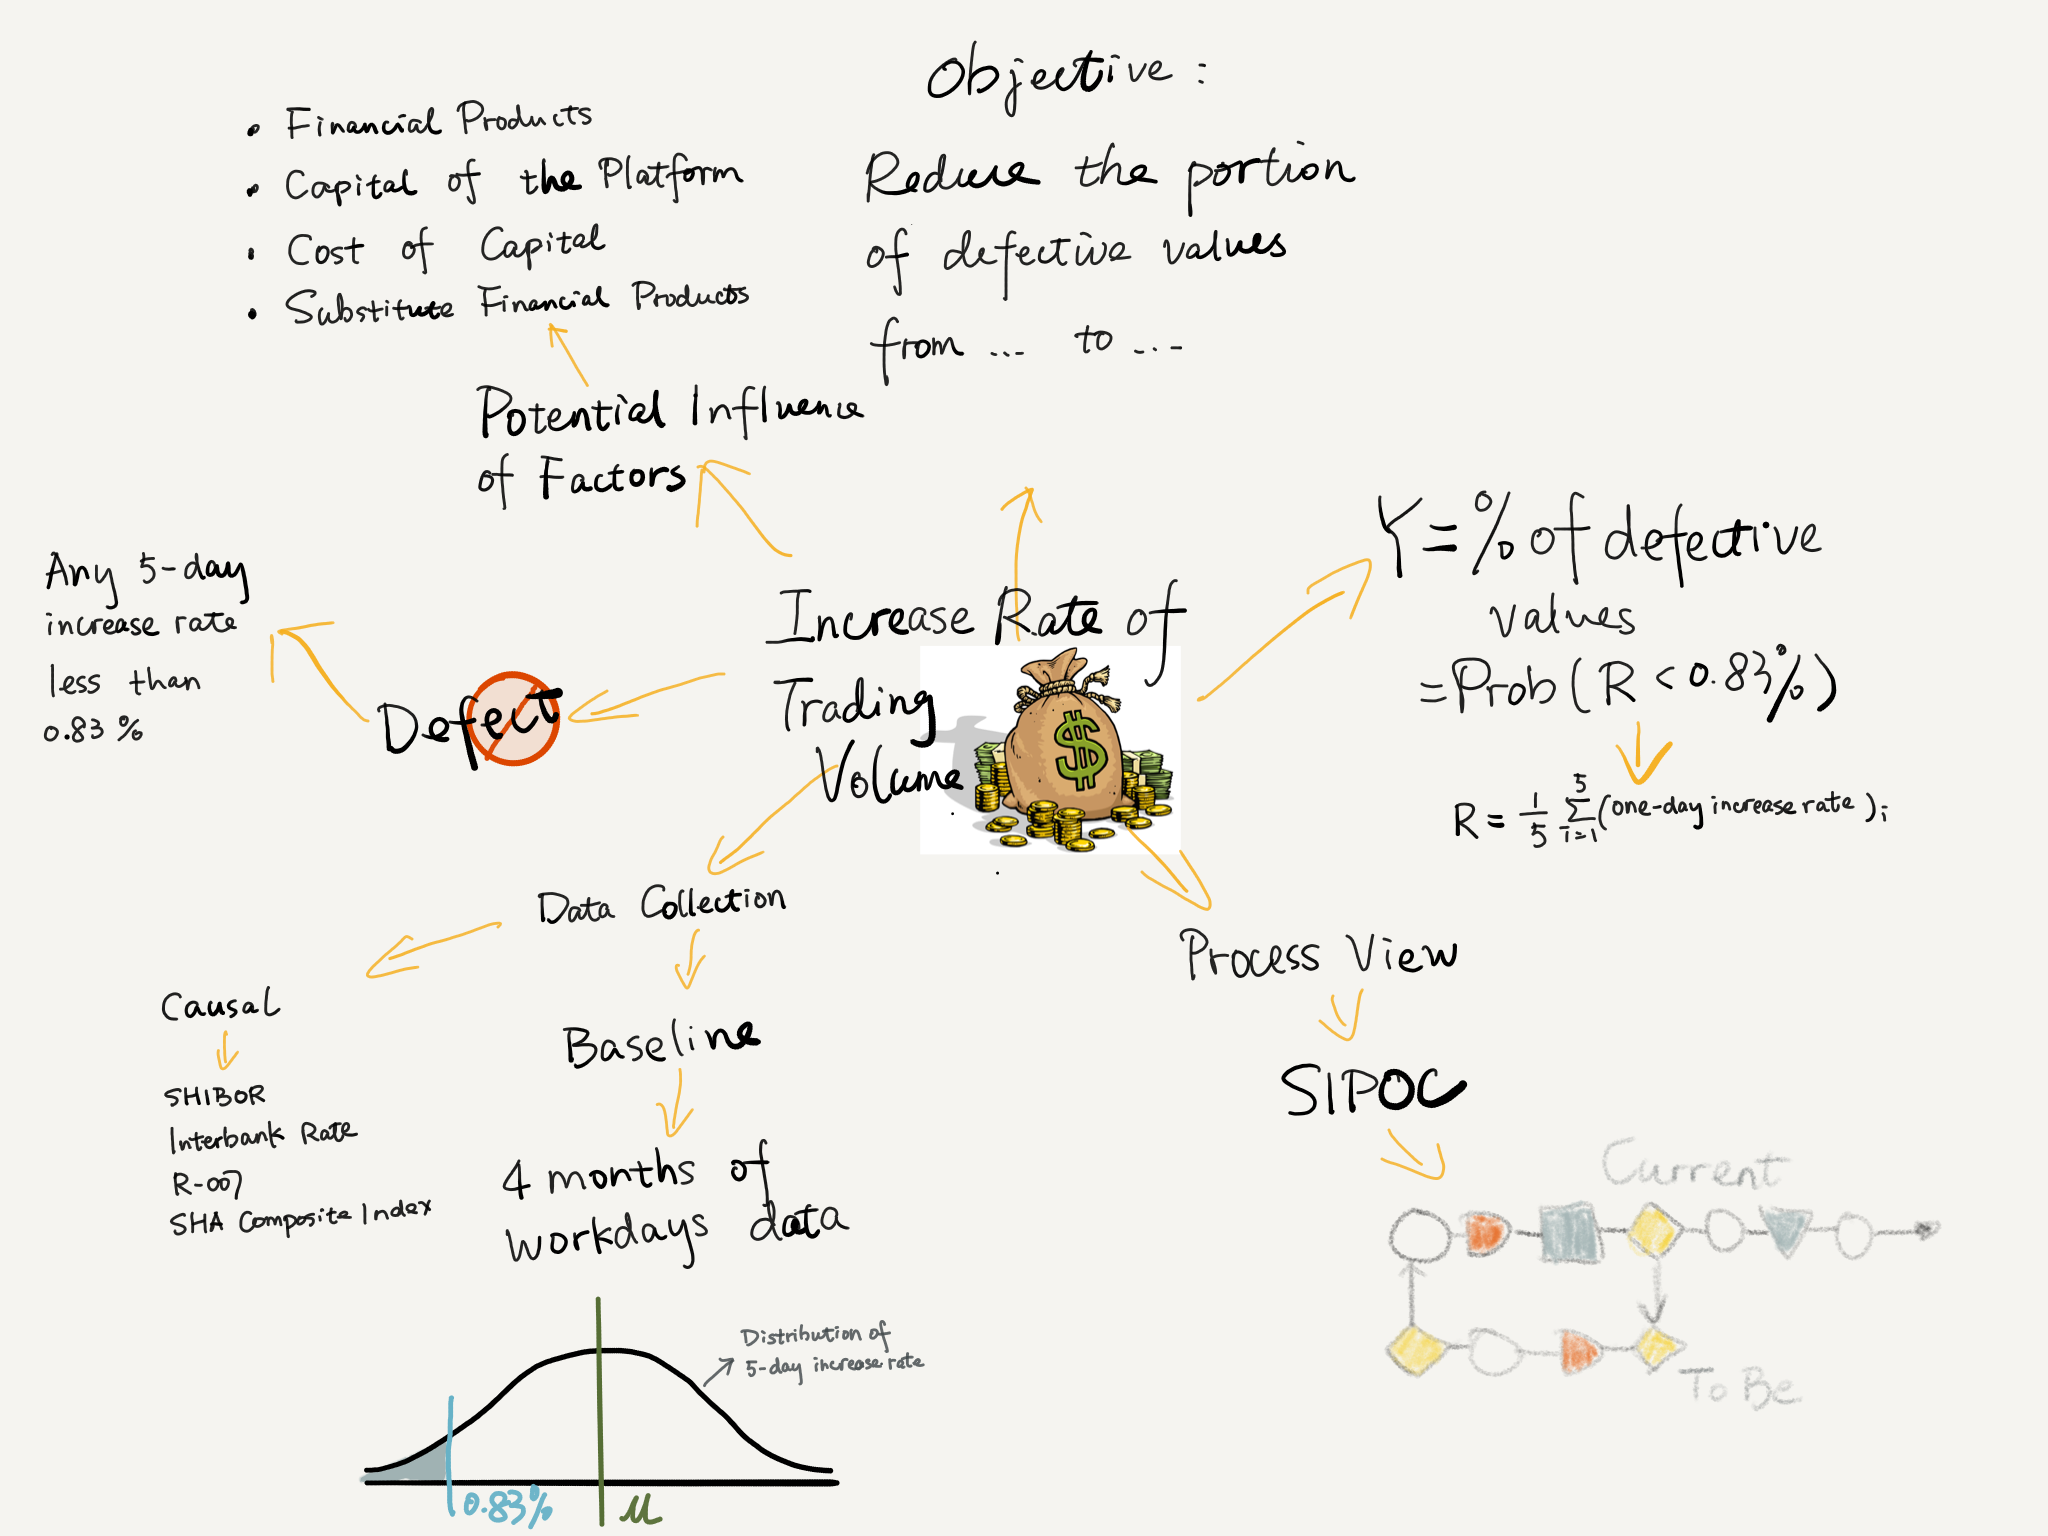 Objective :
Reduce the portion
of defective values
from ... to ...
• Financial Products
• Capital of the Platform
• Cost of Capital
• Substitute Financial Products
Potential Influence
of Factors
Any 5-day
increase rate
less than
0.83 %
Defect
Increase Rate of
Trading
Volume
$
Y = % of defective
values
= Prob ( R < 0.83% )
R = 1/5 5∑i=1 (one-day increase rate ) i
Data Collection
Causal
SHIBOR
Interbank Rate
R-007
SHA Composite Index
Baseline
4 months of
workdays data
Distribution of
5-day increase rate
0.83%
μ
Process View
SIPOC
Current
To Be